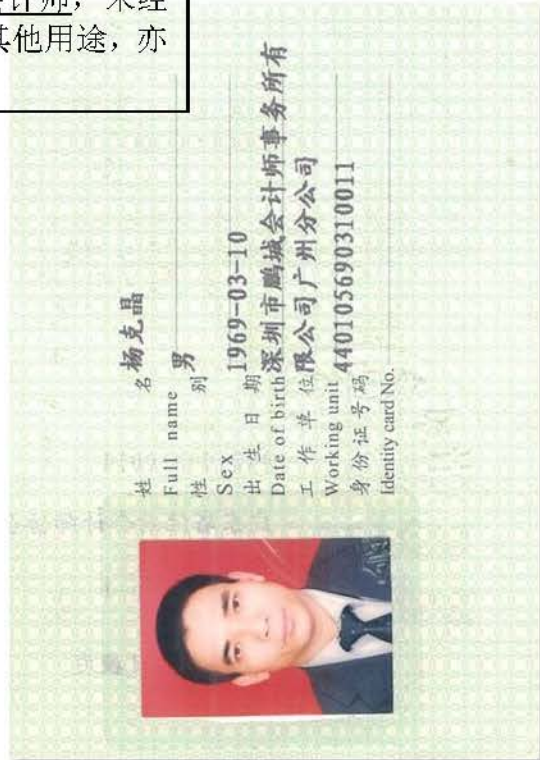 会计师，未经
其他用途，亦
姓 名 杨克晶
Full name
性 别 男
Sex
出 生 日 期 1969-03-10
Date of birth 深圳市鹏城会计师事务所有
工 作 单 位 限公司广州分公司
Working unit
身 份 证 号 码 440105690310011
Identity card No.